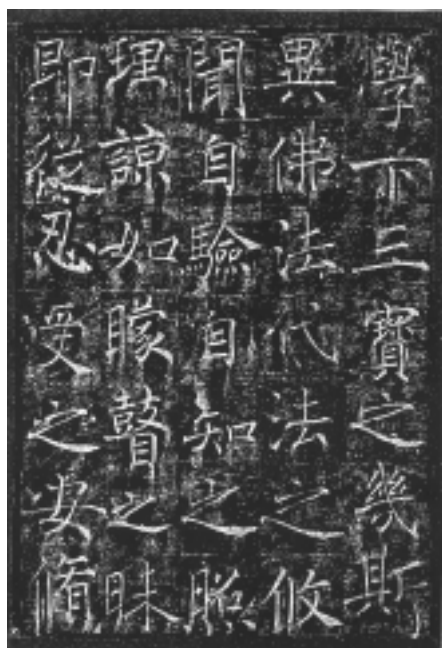 學下三寶之幾斯
異佛法代法之攸
聞自驗自知之照
理諒如矇瞽之昧
即從忍受之安脩